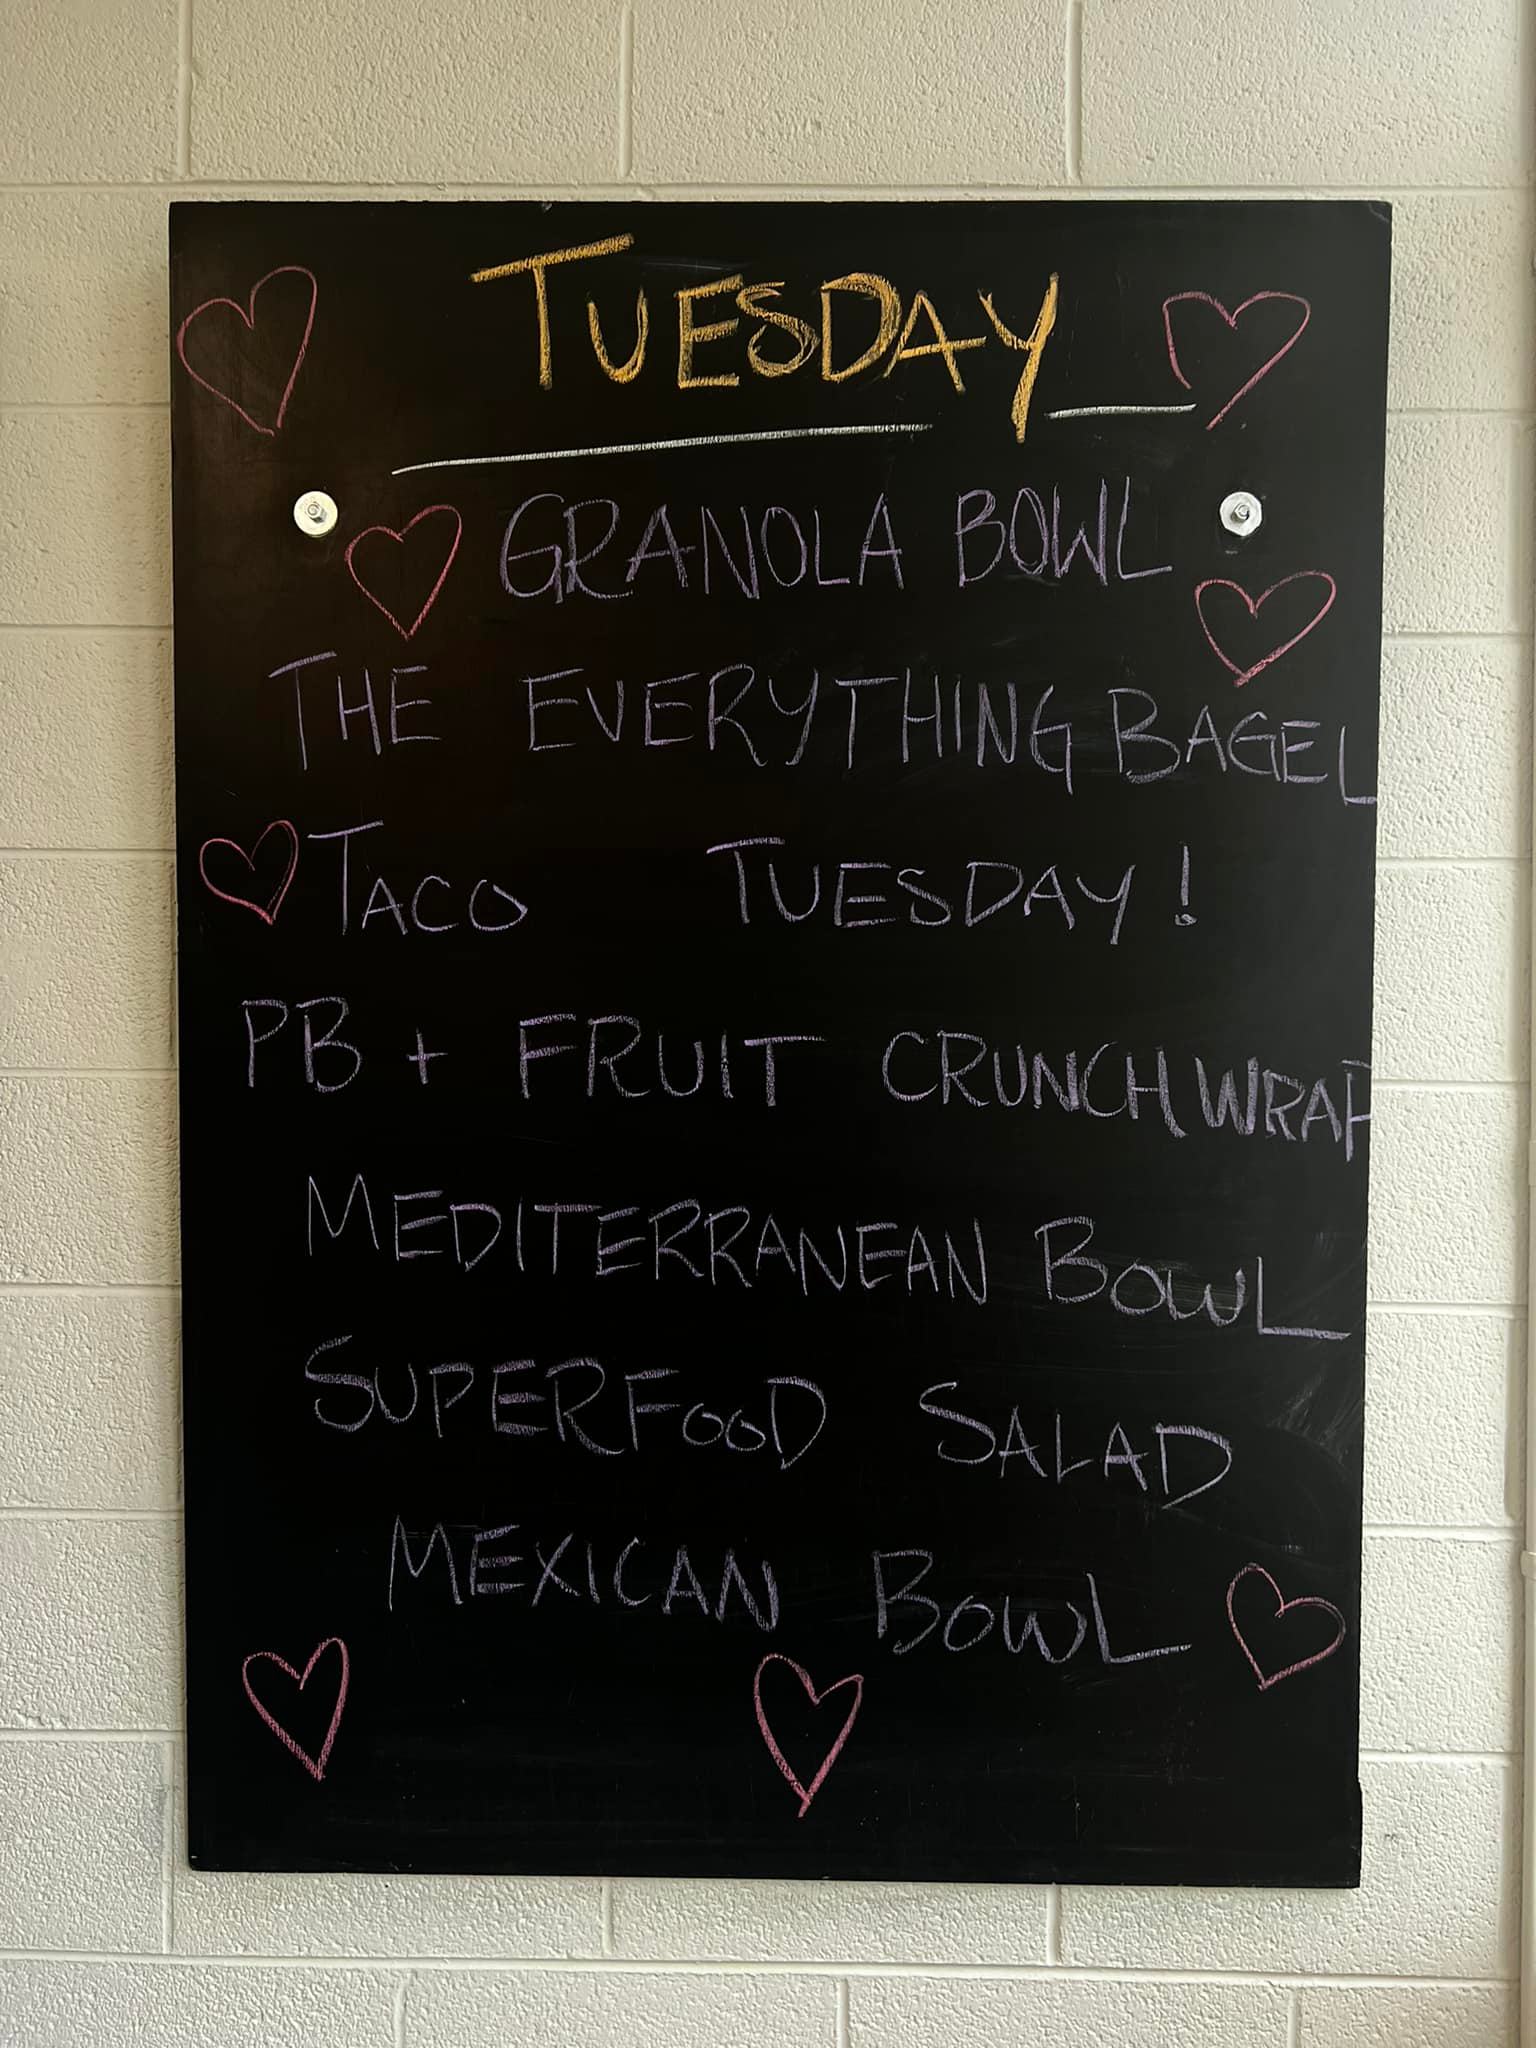 TUESDAY
GRANOLA BOWL
THE EVERYTHING BAGEL
TACO TUESDAY!
PB + FRUIT CRUNCH WRAP
MEDITERRANEAN BOWL
SUPERFOOD SALAD
MEXICAN BOWL